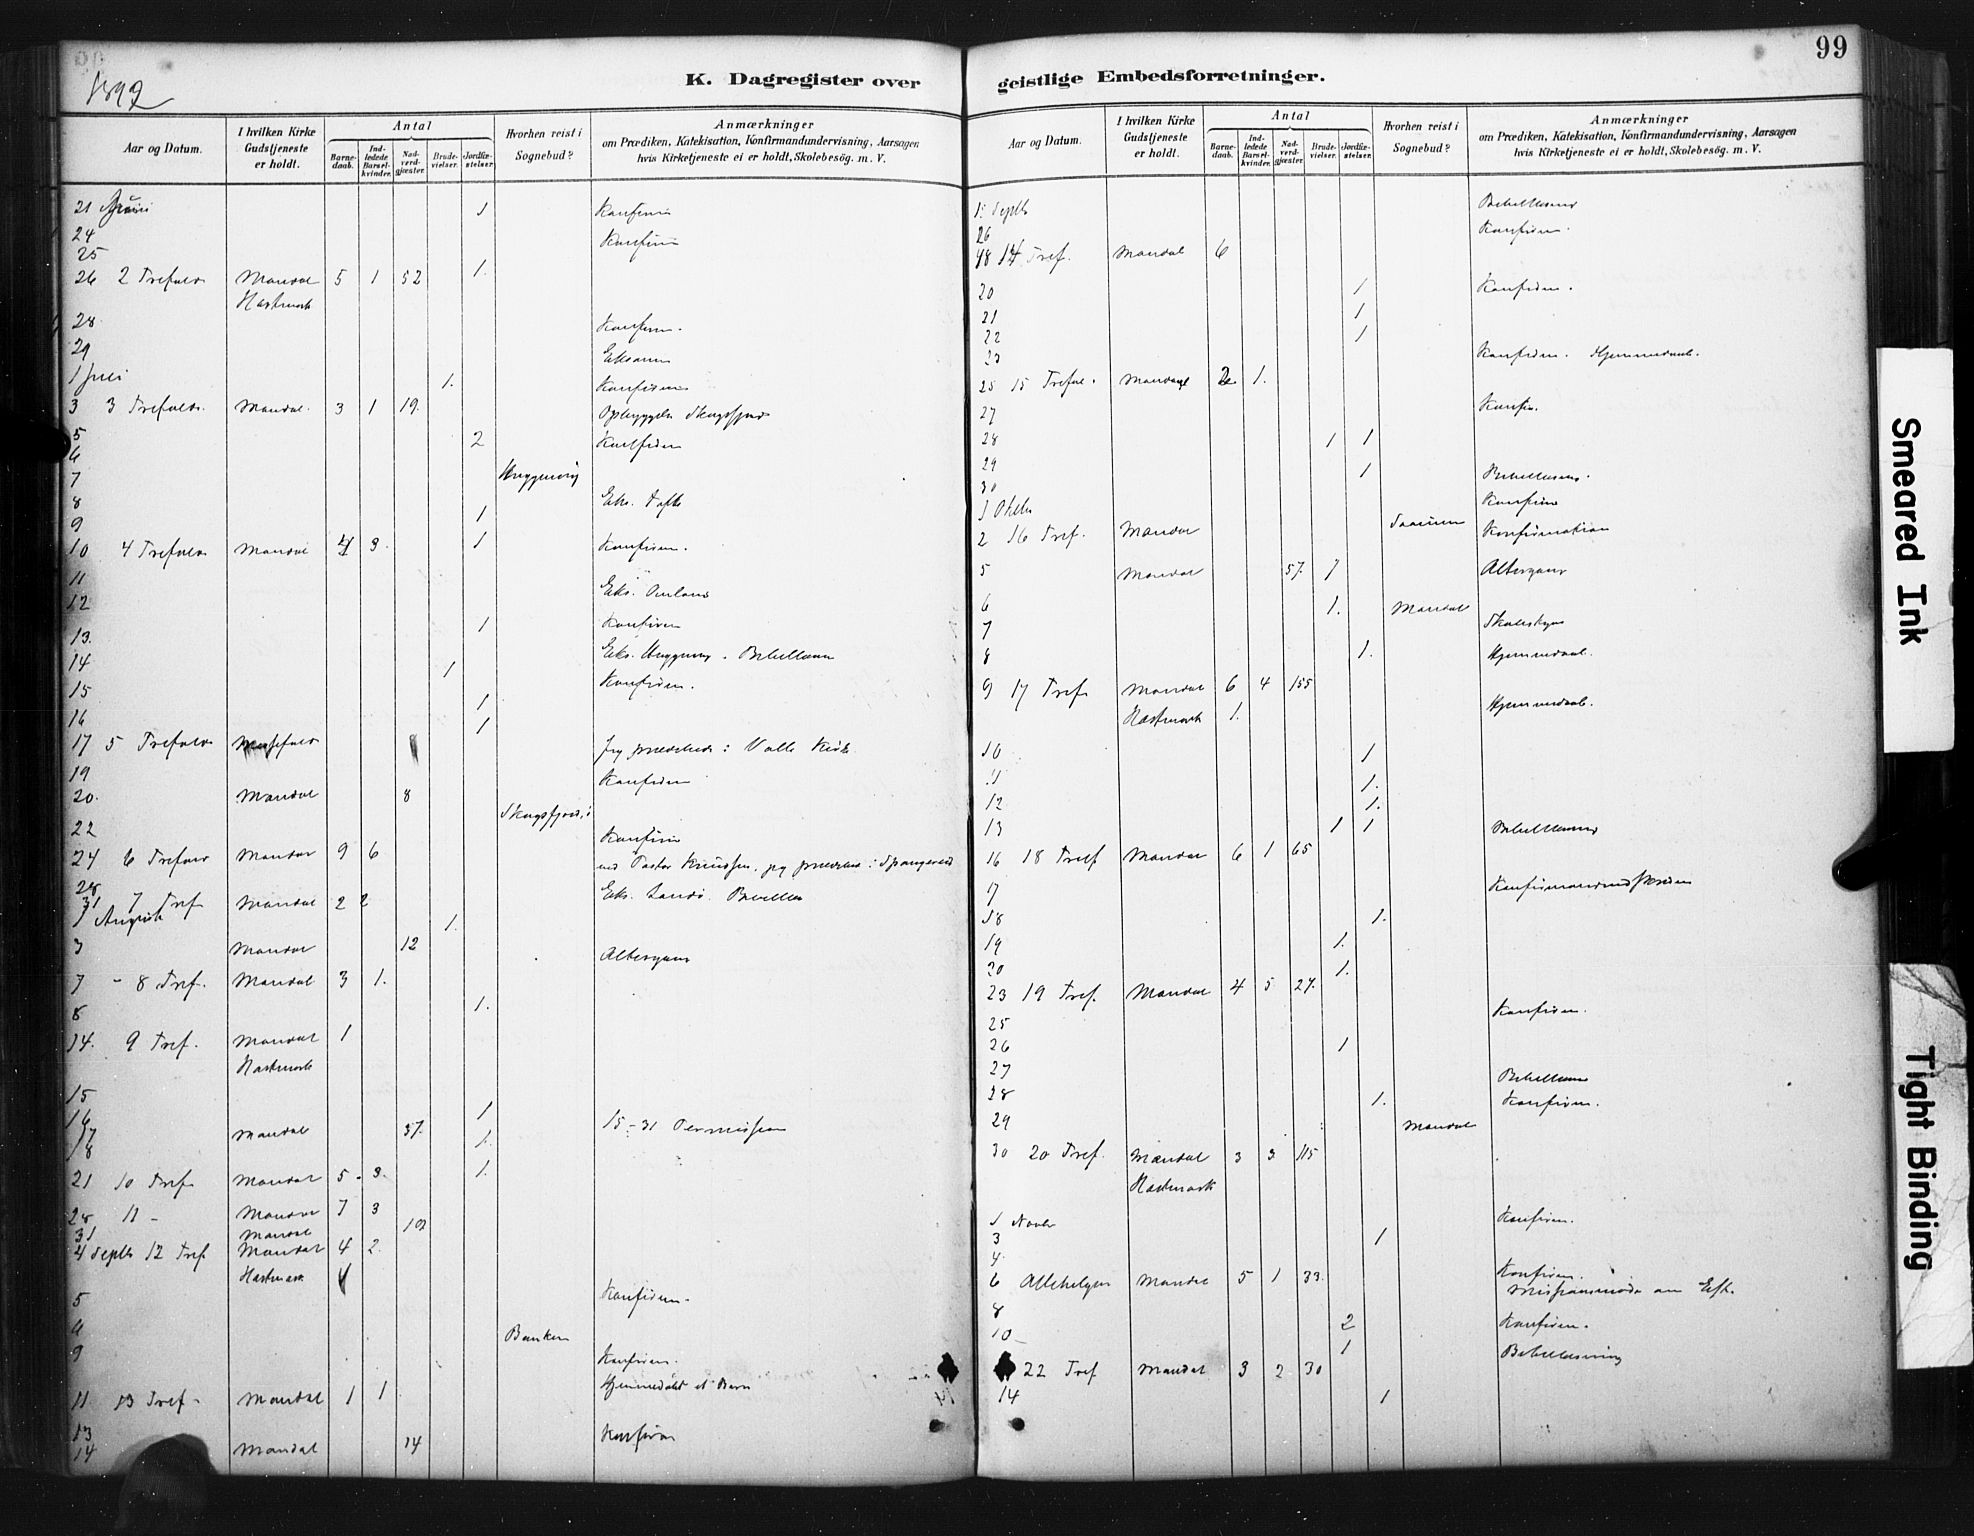 99
1892
K. Dagregister over geistlige Embedsforretninger.
Aar og Datum. I hvilken Kirke Gudstjeneste er holdt. Antal Barnedaab. Indledede Barselkvinder. Nadverdgjæster. Brudevielser. Jordfæstelser. Hvorhen reist i Sognebud? Anmærkninger om Prædiken, Katekisation, Konfirmandundervisning, Aarsagen hvis Kirketjeneste ei er holdt, Skolebesög. m. V.
21 Juni 1 Konfirm
24 Konfirm
25
26 2 Trefold Mandal 5 1 52 1.
Hartmark
28 Konfirm.
29 Eksamen
1 Juli 1. Konfirm
3 3 Trefold. Mandal. 3 1 19. Opbyggelse Skogsfjord
5 2 Konfirm
6
7
8 Eks. Tofte
9 1
10 4 Trefold Mandal 4 3. 1 Konfirm.
11 Eks.
12
13. 1 Konfirm
14 1 Eks. Bibellæsn
15 1 Konfirm.
16 1
17 5 Trefold Jeg prædiked i Valle Kirke
19 Konfirm
20. Mandal 8
22 Skogsfjord Konfirm
24 6 Trefold Mandal 9 6 ved Pastor Knudsen, jeg prædiked i Spangereid
28 Eks.
31 7 Tref Mandal 2 2
1 August 1.
3 Mandal 12 Altergang
7 - 8 Tref. Mandal 3 1.
8 1.
14. 9 Tref. Mandal 1
Hartmark
15 1
16 15-31 Permission
17 Mandal 57.
18 1.
21 10 Tref Mandal 5. 3. 1.
28 11 - Mandal 7 3
31 Mandal 10
4 Septb 12 Tref Mandal 4 2.
Hartmark
5 Konfirm.
Banken
9 Konfirm.
Hjemmedøbt et Barn
11 13 Tref - Mandal 1 1
13 Konfirm
14 Mandal 14
Aar og Datum. I hvilken Kirke Gudstjeneste er holdt. Antal Barnedaab. Indledede Barselkvinder. Nadverdgjæster. Brudevielser. Jordfæstelser. Hvorhen reist i Sognebud? Anmærkninger om Prædiken, Katekisation, Konfirmandundervisning, Aarsagen hvis Kirketjeneste ei er holdt, Skolebesög. m. V.
Septb Bibellæsning
Konfirm.
18 14 Tref. Mandal 6
20 1 Konfirm.
21 1
22 1
23 Konfirm. Hjemmedaab.
25 15 Trefol. Mandal 2 1.
27 Konfir.
28 1 1
29 1 Bibellæsn.
30 Konfirm
1 Oktbr
2 16 Tref. Mandal Konfirmation
5 Mandal 57. 1 Altergang
6 1. Mandal
7
8 1. Hjemmedaab.
9 17 Tref Mandal 6 4 155
Hartmark 1. Hjemmedaab.
10 1
11 1.
12 1.
13 1 1 Bibellæsning
16 18 Tref Mandal 6 1 65
17
18 1.
19 1.
20 1.
23 19 Tref. Mandal 4 5 27.
25 Konfirm.
26 1
27 Bibellæsn
28 1. Konfirm.
29 Mandal
30 20 Tref. Mandal 3 3 115
Hartmark
1 Novbr Konfirm.
3 1
4 Konfirm.
6 Allehelgen Mandal 5 1 33. Missionsmøde om Eft.
8 2 Konfirm.
10 1 Bibellæsning
22 Tref Mandal 3 2 30
14 1
Smeared Ink
Tight Binding